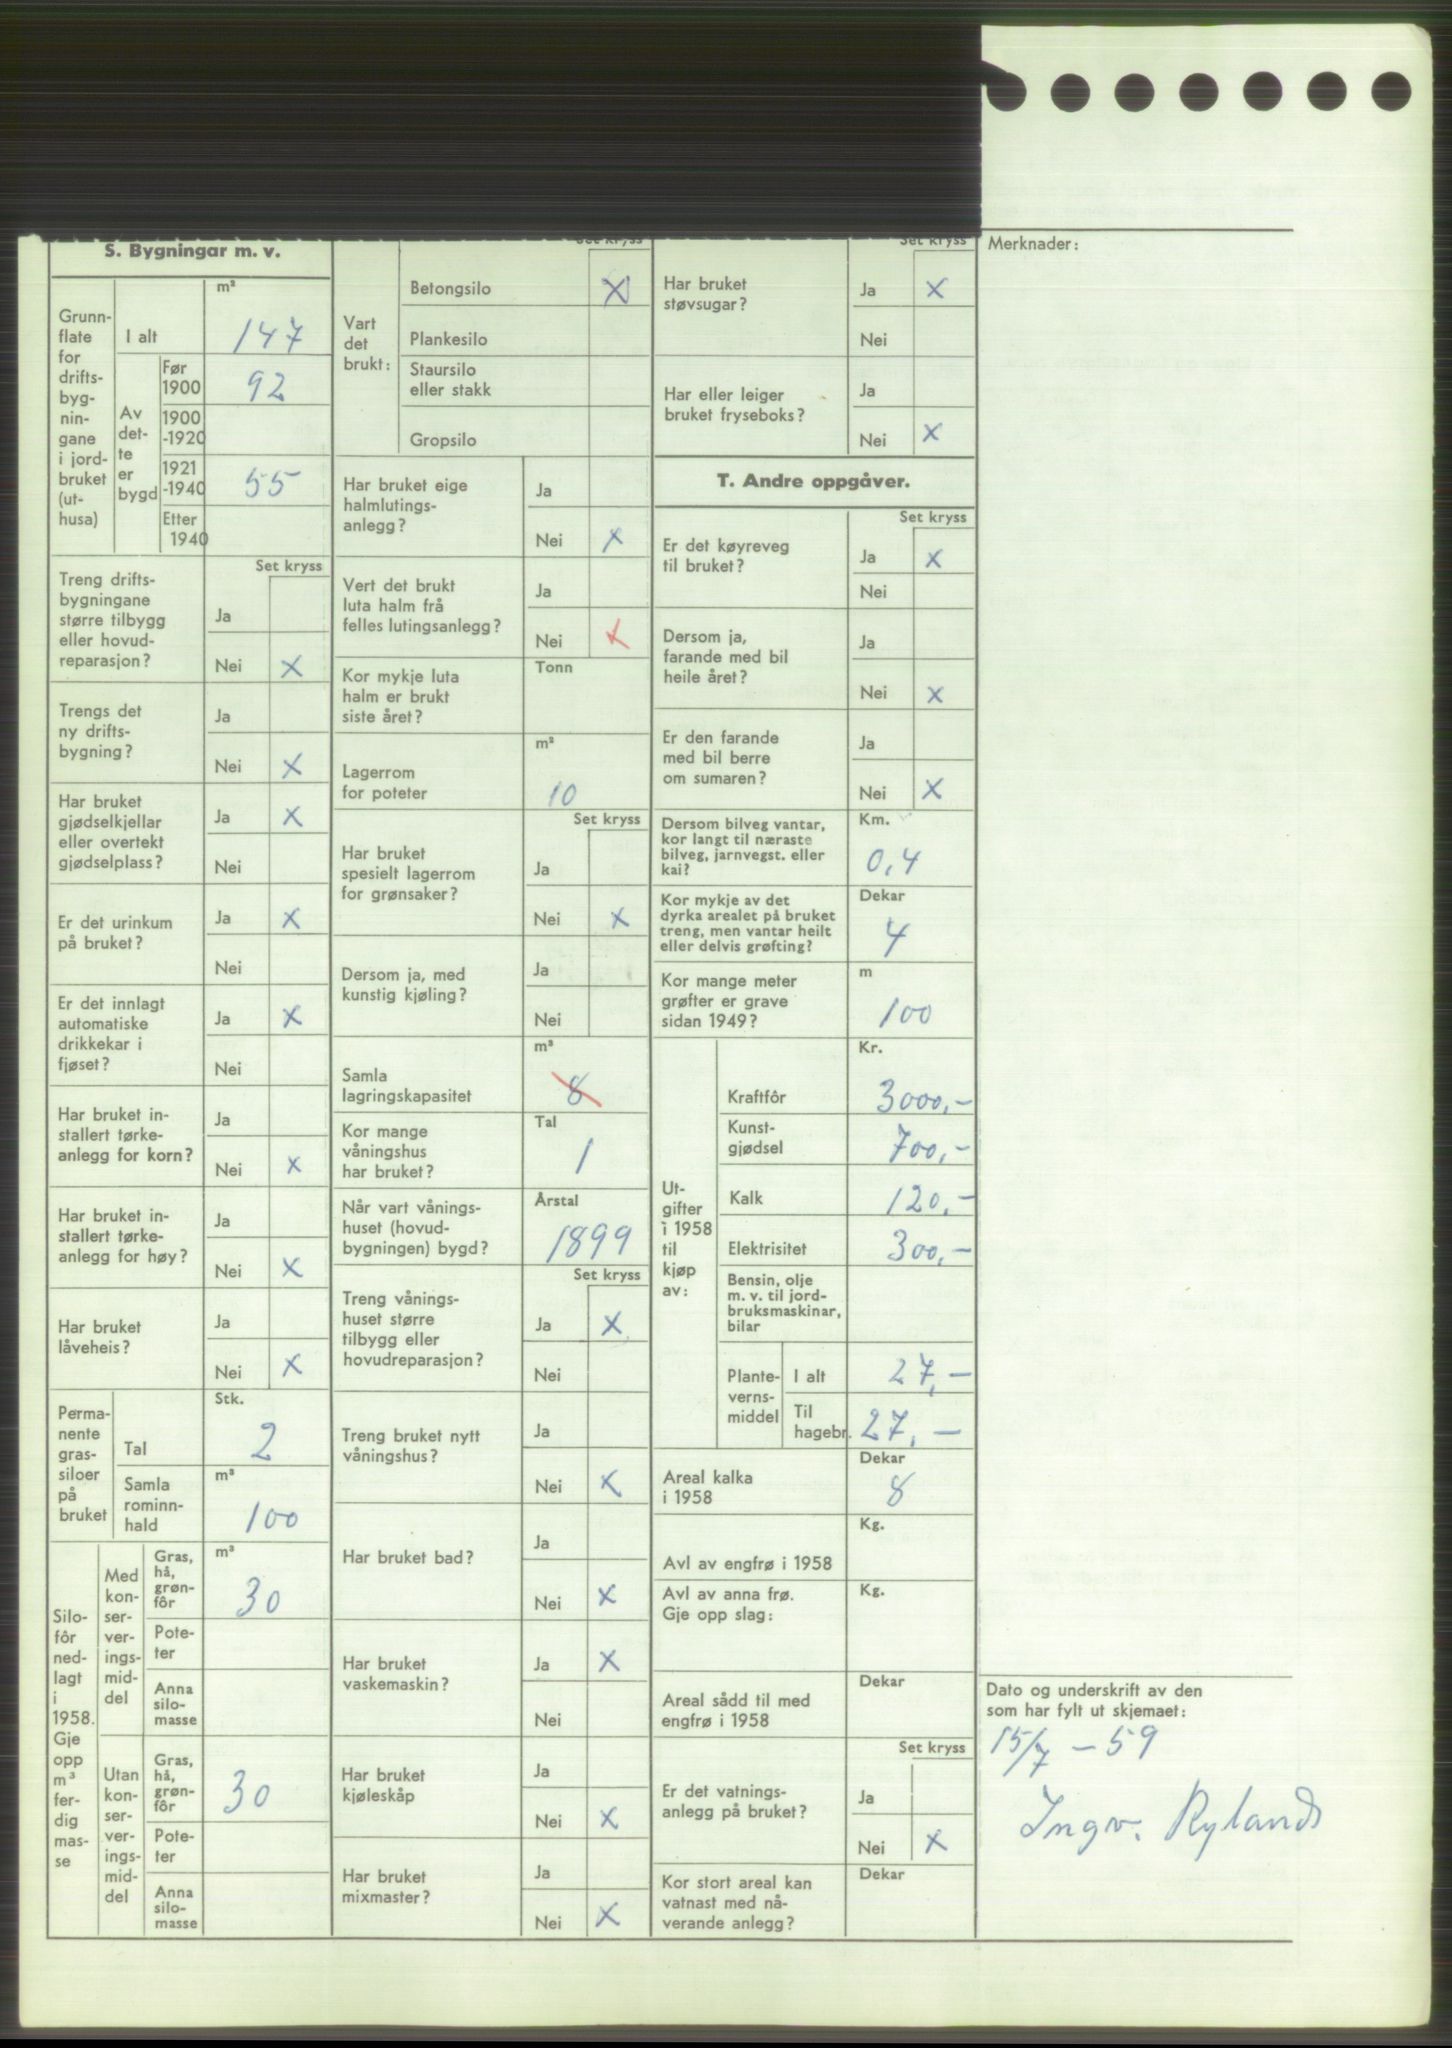 S. Bygningar m. v.
Grunn-
flate
for
drifts-
byg-
nin-
gane
i jord-
bruket
(ut-
husa)
m²
I alt 147
Av
det-
te
er
bygd
Før
1900 92
1900
-1920
1921
-1940 55
Etter
1940
Set kryss
Treng drifts-
bygningane
større tilbygg
eller hovud-
reparasjon?
Ja
Nei X
Trengs det
ny drifts-
bygning?
Ja
Nei X
Har bruket
gjødselkjellar
eller overtekt
gjødselplass?
Ja X
Nei
Er det urinkum
på bruket?
Ja X
Nei
Er det innlagt
automatiske
drikkekar i
fjøset?
Ja X
Nei
Har bruket in-
stallert tørke-
anlegg for korn?
Ja
Nei X
Har bruket in-
stallert tørke-
anlegg for høy?
Ja
Nei X
Har bruket
låveheis?
Ja
Nei X
Perma-
nente
gras-
siloer
på
bruket
Stk.
Tal 2
m³
Samla
rominn-
hald 100
Silo-
fôr
ned-
lagt
i
1958.
Gje
opp
m³
fer-
dig
mas-
se
Med
kon-
ser-
ver-
ings-
mid-
del
m³
Gras,
hå,
grøn-
fôr 30
Pote-
ter
Anna
silo-
masse
Utan
kon-
ser-
ver-
ings-
mid-
del
Gras,
hå,
grøn-
fôr 30
Pote-
ter
Anna
silo-
masse
Set kryss
Vart
det
brukt:
Betongsilo X
Plankesilo
Staursilo
eller stakk
Gropsilo
Har bruket eige
halmlutings-
anlegg?
Ja
Nei X
Vert det brukt
luta halm frå
felles lutingsanlegg?
Ja
Nei X
Kor mykje luta
halm er brukt
siste året?
Tonn
Lagerrom
for poteter
m²
10
Set kryss
Har bruket
spesielt lagerrom
for grønsaker?
Ja
Nei X
Dersom ja, med
kunstig kjøling?
Ja
Nei
Samla
lagringskapasitet
m³
8
Kor mange
våningshus
har bruket?
Tal
1
Når vart vånings-
huset (hovud-
bygningen) bygd?
Årstal
1899
Set kryss
Treng vånings-
huset større
tilbygg eller
hovudreparasjon?
Ja X
Nei
Treng bruket nytt
våningshus?
Ja
Nei X
Har bruket bad?
Ja
Nei X
Har bruket
vaskemaskin?
Ja X
Nei
Har bruket
kjøleskåp
Ja
Nei X
Har bruket
mixmaster?
Ja
Nei X
Set kryss
Har bruket
støvsugar?
Ja X
Nei
Har eller leiger
bruket fryseboks?
Ja
Nei X
T. Andre oppgåver.
Set kryss
Er det køyreveg
til bruket?
Ja X
Nei
Dersom ja,
farande med bil
heile året?
Ja
Nei X
Er den farande
med bil berre
om sumaren?
Ja
Nei X
Dersom bilveg vantar,
kor langt til næraste
bilveg, jarnvegst. eller
kai?
Km.
0,4
Kor mykje av det
dyrka arealet på bruket
treng, men vantar heilt
eller delvis grøfting?
Dekar
4
Kor mange meter
grøfter er grave
sidan 1949?
m
100
Ut-
gifter
i 1958
til
kjøp
av:
Kr.
Kraftfôr 3000,-
Kunst-
gjødsel 700,-
Kalk 120,-
Elektrisitet 300,-
Bensin, olje
m. v. til jord-
bruksmaskinar,
bilar
Plante-
verns-
middel
I alt 27,-
Til
hagebr. 27,-
Areal kalka
i 1958
Dekar
8
Avl av engfrø i 1958
Kg.
Avl av anna frø.
Gje opp slag:
Kg.
Areal sådd til med
engfrø i 1958
Dekar
Set kryss
Er det vatnings-
anlegg på bruket?
Ja
Nei X
Kor stort areal kan
vatnast med nå-
verande anlegg?
Dekar
Merknader:
Dato og underskrift av den
som har fylt ut skjemaet:
15/7 - 59
Ingv. Rylands